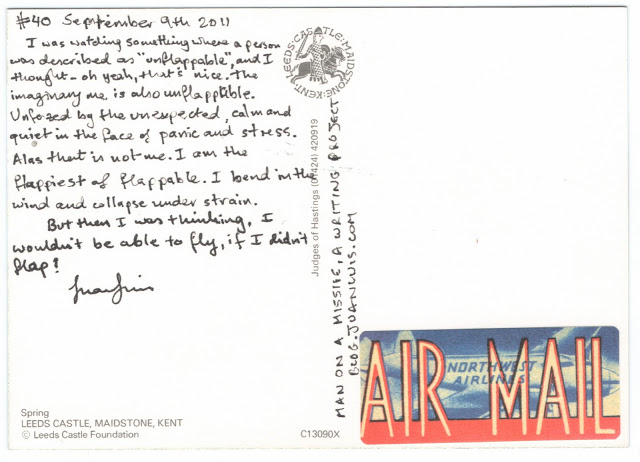 #40 September 9th 2011
I was watching something where a person
was described as "unflappable", and I
thought - oh yeah, that's nice. The
imaginary me is also unflapptible.
Unfozed by the unexpected, calm and
quiet in the face of panic and stress.
Alas that is not me. I am the
flappiest of flappable. I bend in the
wind and collapse under strain.
But then I was thinking, I
wouldn't be able to fly, if I didn't
flap!
Juan Luis
Spring
LEEDS CASTLE, MAIDSTONE, KENT
© Leeds Castle Foundation
C13090X
LEEDS·CASTLE·MAIDSTONE·KENT·
Judges of Hastings (01424) 420919
MAN ON A MISSILE, A WRITING PROJECT
BLOG.JUANLUIS.COM
NORTHWEST
AIRLINES
AIR MAIL